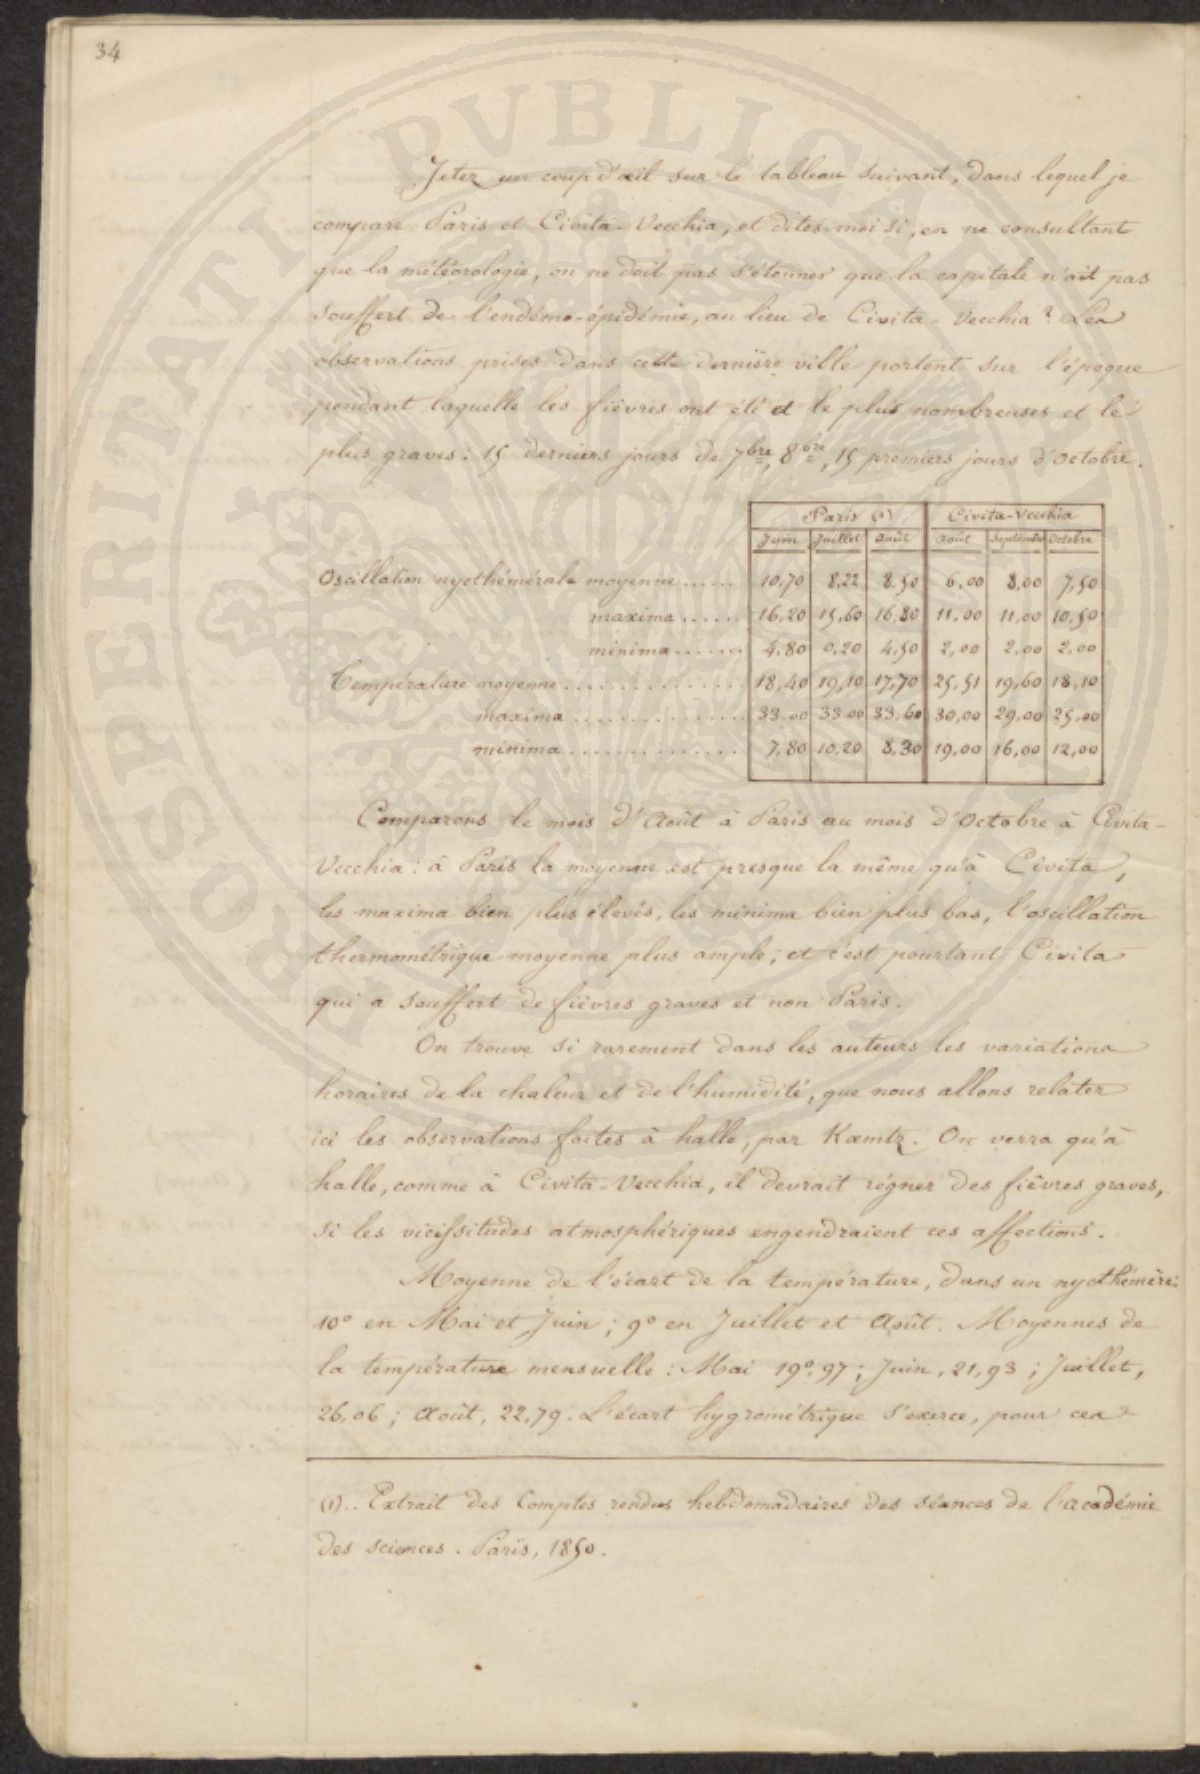 34
Jetez un coup d'œil sur le tableau suivant, dans lequel je
compare Paris et Civita-Vecchia, et dites-moi si, en ne consultant
que la météorologie, on ne doit pas s'étonner que la capitale n'ait pas
souffert de l'endémo-épidémie, au lieu de Civita-Vecchia ? Les
observations prises dans cette dernière ville portent sur l'époque
pendant laquelle les fièvres ont été et le plus nombreuses et le
plus graves : 15 derniers jours de 7bre, 8bre, 15 premiers jours d'octobre.
Paris (1) Civita-Vecchia
Juin Juillet Août Août Septembre Octobre
Oscillation nycthémérale moyenne ...... 10,70 8,22 8,50 6,00 8,00 7,50
maxima ...... 16,20 15,60 16,80 11,00 11,00 10,50
minima ...... 4,80 0,20 4,50 2,00 2,00 2,00
Température moyenne .............. 18,40 19,10 17,70 25,51 19,60 18,10
maxima .............. 33.00 33.00 33,60 30,00 29,00 25,00
minima .............. 7,80 10,20 8,30 19,00 16,00 12,00
Comparons le mois d'Août à Paris au mois d'Octobre à Civita-
Vecchia : à Paris la moyenne est presque la même qu'à Civita,
les maxima bien plus élevés, les minima bien plus bas, l'oscillation
thermométrique moyenne plus ample ; et c'est pourtant Civita
qui a souffert de fièvres graves et non Paris.
On trouve si rarement dans les auteurs les variations
horaires de la chaleur et de l'humidité, que nous allons relater
ici les observations faites à halle, par Kæmtz. On verra qu'à
halle, comme à Civita-Vecchia, il devrait régner des fièvres graves,
si les vicissitudes atmosphériques engendraient ces affections.
Moyenne de l'écart de la température, dans un nycthémère :
10° en Mai et Juin ; 9° en Juillet et Août. Moyennes de
la température mensuelle : Mai 19°,97 ; Juin, 21,93 ; Juillet,
26,06 ; Août, 22,79. L'écart hygrométrique s'exerce, pour ces
(1).. Extrait des Comptes rendus hebdomadaires des séances de l'académie
des sciences. Paris, 1850.
PROSPERITATI PVBLICAE